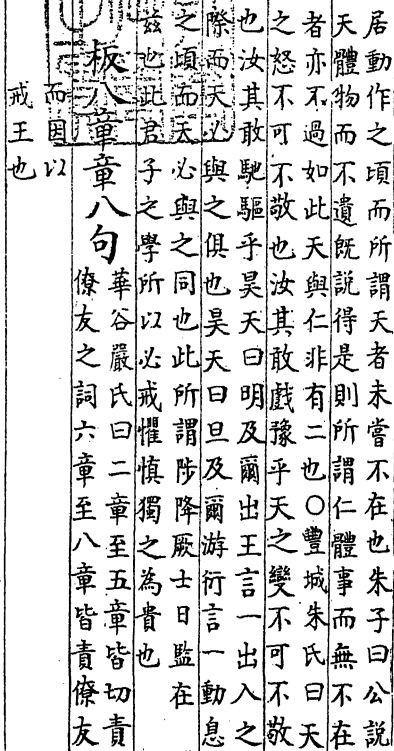 居動作之頃而所謂天者未嘗不在也朱子曰公說
天體物而不遺旣說得是則所謂仁體事而無不在
者亦不過如此天與仁非有二也○豐城朱氏曰天
之怒不可不敬也汝其敢戲豫乎天之變不可不敬
也汝其敢馳驅乎昊天曰明及爾出王言一出入之
際而天必與之俱也昊天曰旦及爾游衍言一動息
之頃而天必與之同也此所謂陟降厥士日監在
兹也此君子之學所以必戒懼慎獨之為貴也
板八章章八句
華谷嚴氏曰二章至五章皆切責
僚友之詞六章至八章皆責僚友
而因以
戒王也